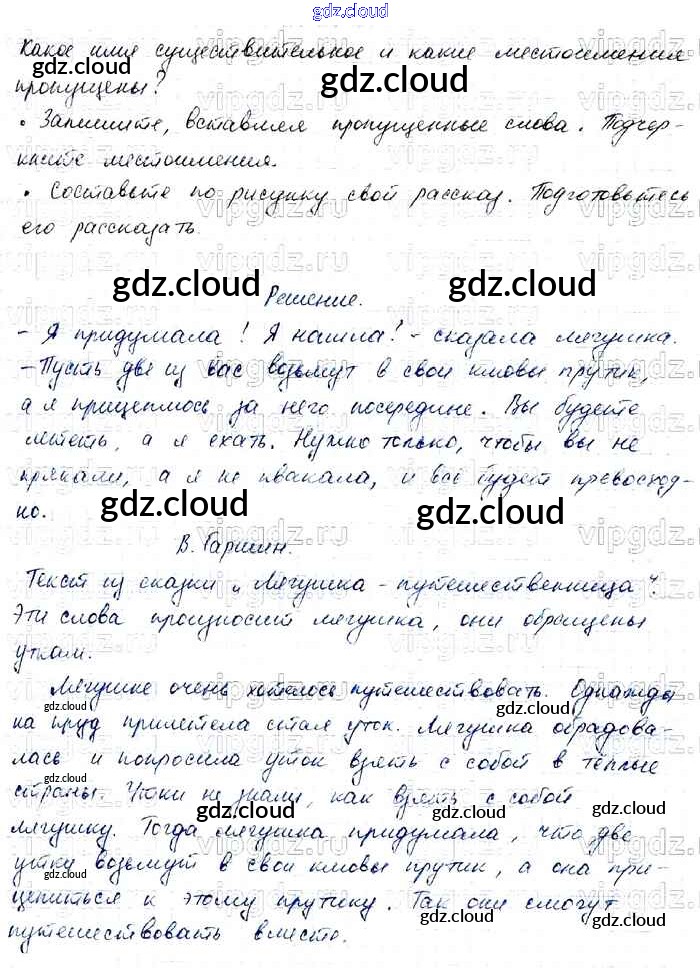 gdz.cloud
Какое имя существительное и какие местоимения
gdz.cloud
пропущены?
gdz.cloud
• Запишите, вставляя пропущенные слова. Подчер-
кните местоимения.
• Составьте по рисунку свой рассказ. Подготовьтесь
его рассказать.
gdz.cloud gdz.cloud
Решение.
– Я придумала! Я нашла! – сказала лягушка.
– Пусть две из вас возьмут в свои клювы прутик,
а я прицеплюсь за него посередине. Вы будете
лететь, а я ехать. Нужно только, чтобы вы не
крякали, а я не квакала, и всё будет превосход-
но.
gdz.cloud gdz.cloud
В. Гаршин.
Текст из сказки „Лягушка – путешественница“.
Эти слова произносит лягушка, они обращены
уткам.
Лягушке очень хотелось путешествовать. Однажды
на пруд прилетела стая уток. Лягушка обрадова-
gdz.cloud gdz.cloud
лась и попросила уток взять с собой в тёплые
gdz.cloud gdz.cloud
страны. Утки не знали, как взять с собой
gdz.cloud gdz.cloud
лягушку. Тогда лягушка придумала, что две
утки возьмут в свои клювы прутик, а она при-
gdz.cloud
цепиться к этому прутику. Так они смогут
gdz.cloud gdz.cloud
путешествовать вместе.